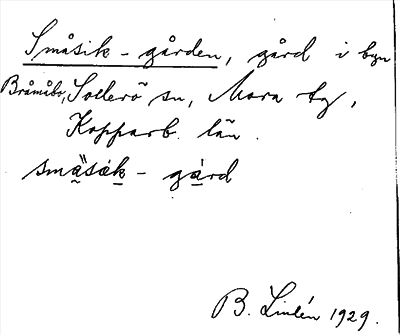 Småsik-gården, gård i byn
Bråmåbo, Sollerö sn, Mora tg,
Kopparb. län.
småsik - gård
B. Lindén 1929.